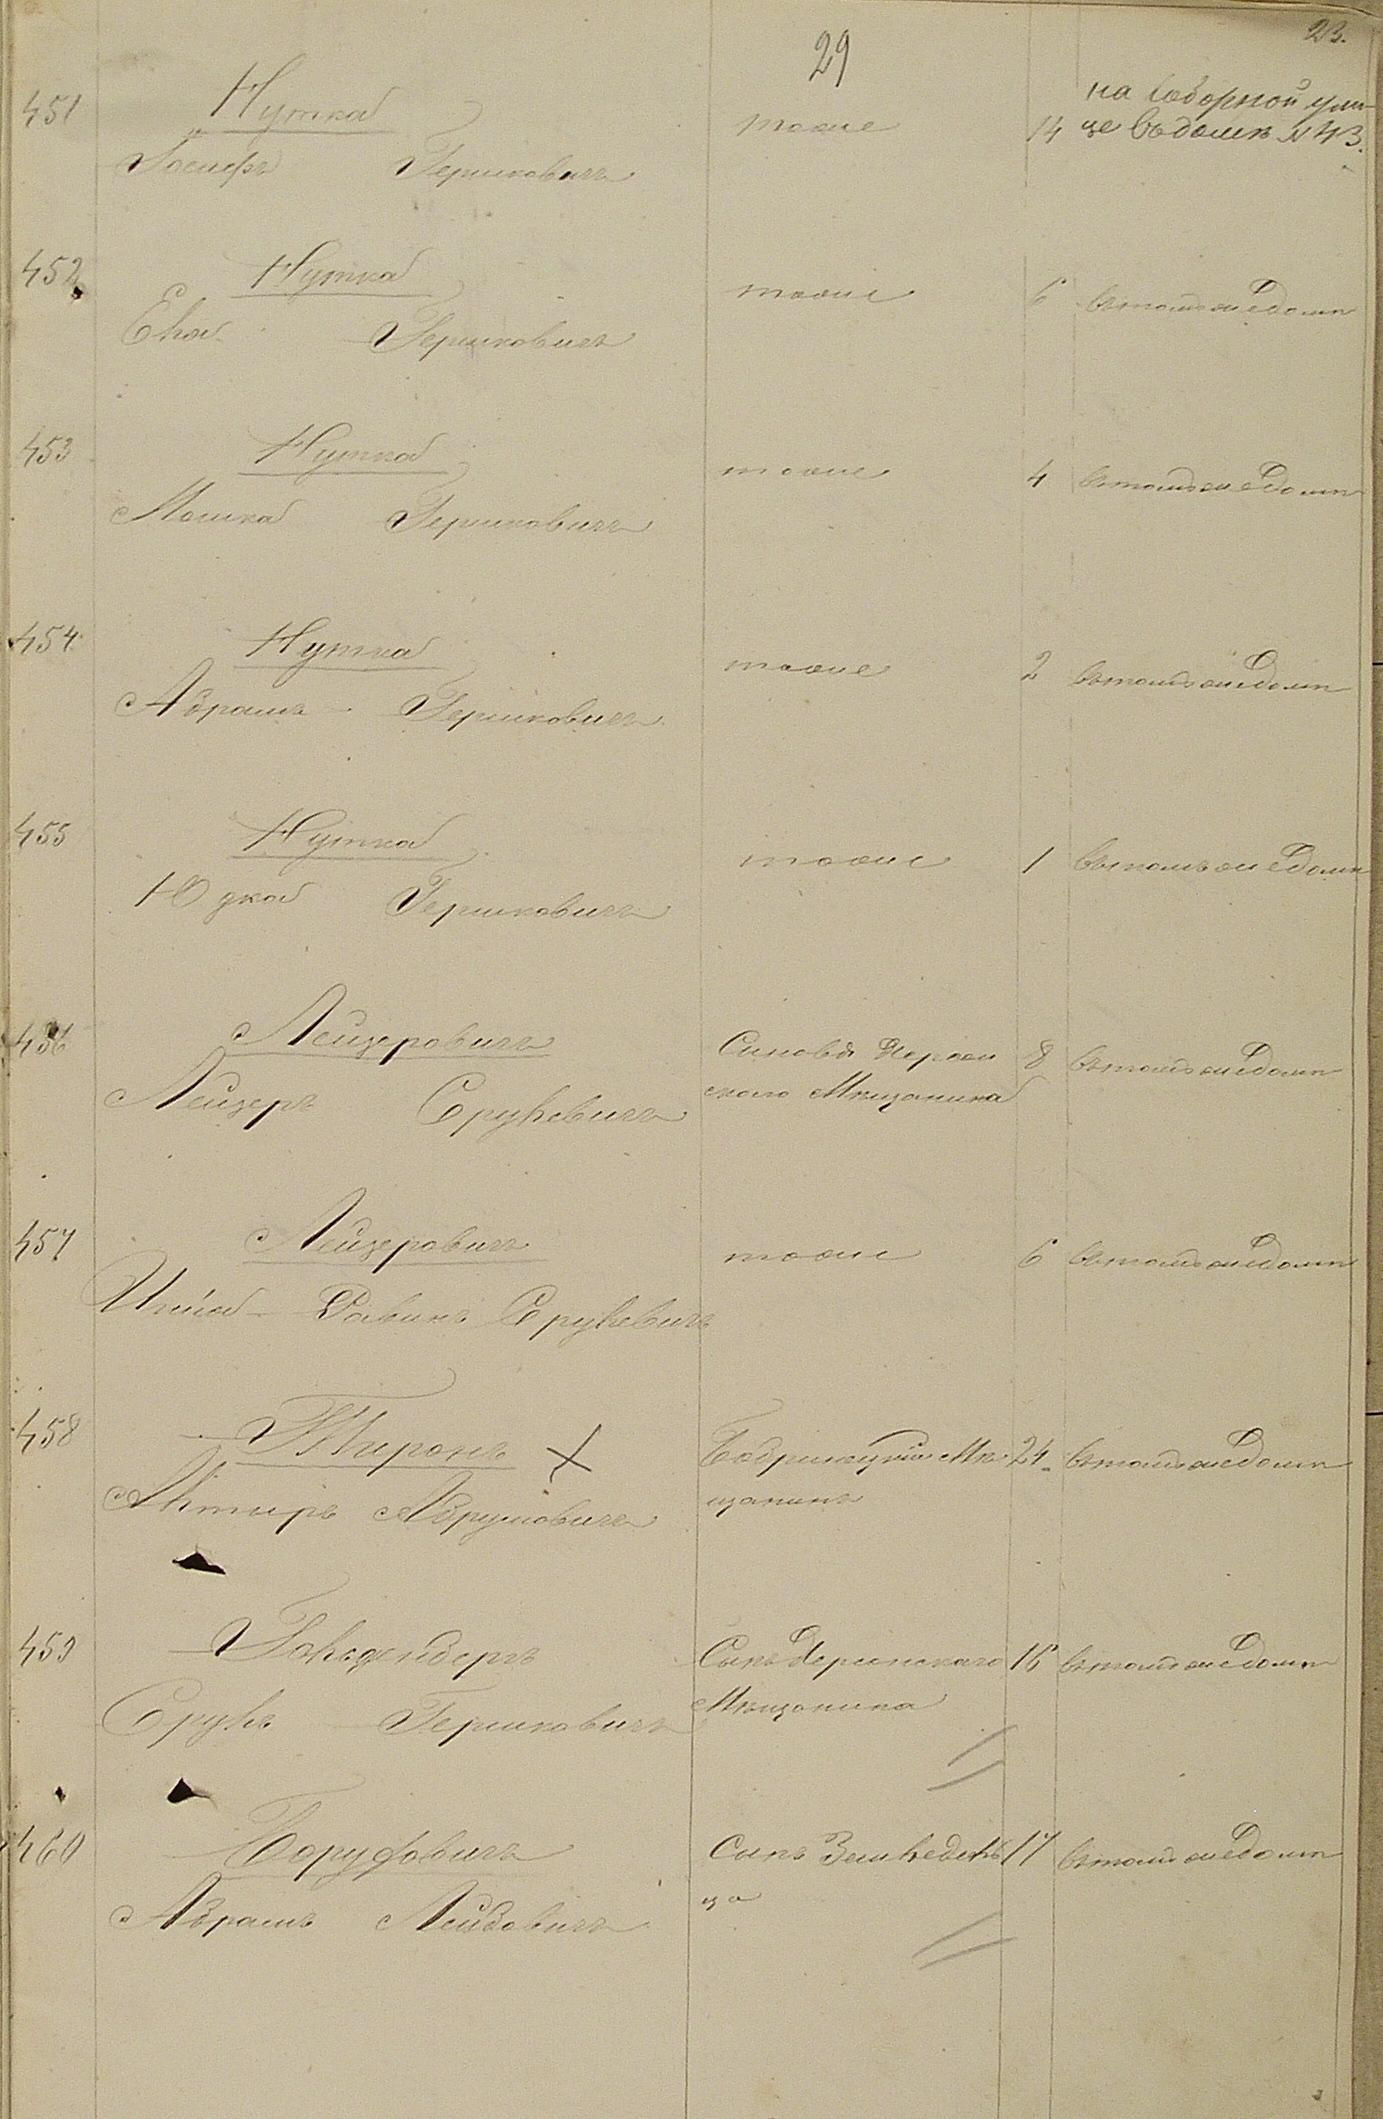 29
23.
451 Нутка тоже 14 на Соборной ули-
це въ домѣ № 43.
Іосифъ Гершковичъ
452 Нутка тоже 6 въ томъ же домѣ
Гершковичъ
453 Нутка тоже 4 въ томъ же домѣ
Мошка Гершковичъ
454 Нутка тоже 2 въ томъ же домѣ
Абрамъ Гершковичъ
455 Нутка тоже 1 въ томъ же домѣ
Юдка Гершковичъ
456 Лейзеровичъ Сыновья Херсон
8 въ томъ же домѣ
Лейзеръ Срулевичъ скаго Мѣщанина
457 Лейзеровичъ тоже 6 въ томъ же домѣ
Срулевичъ
458 Тиронъ Бобринецкій Мѣ 24 въ томъ же домѣ
щанинъ
Абрумовичъ
459 Гольденбергъ Сынъ Херсонскаго 16 въ томъ же домѣ
Сруль Гершковичъ Мѣщанина
460 Боруховичъ Сынъ Земледѣль 17 въ томъ же домѣ
ца
Абрамъ Лейбовичъ